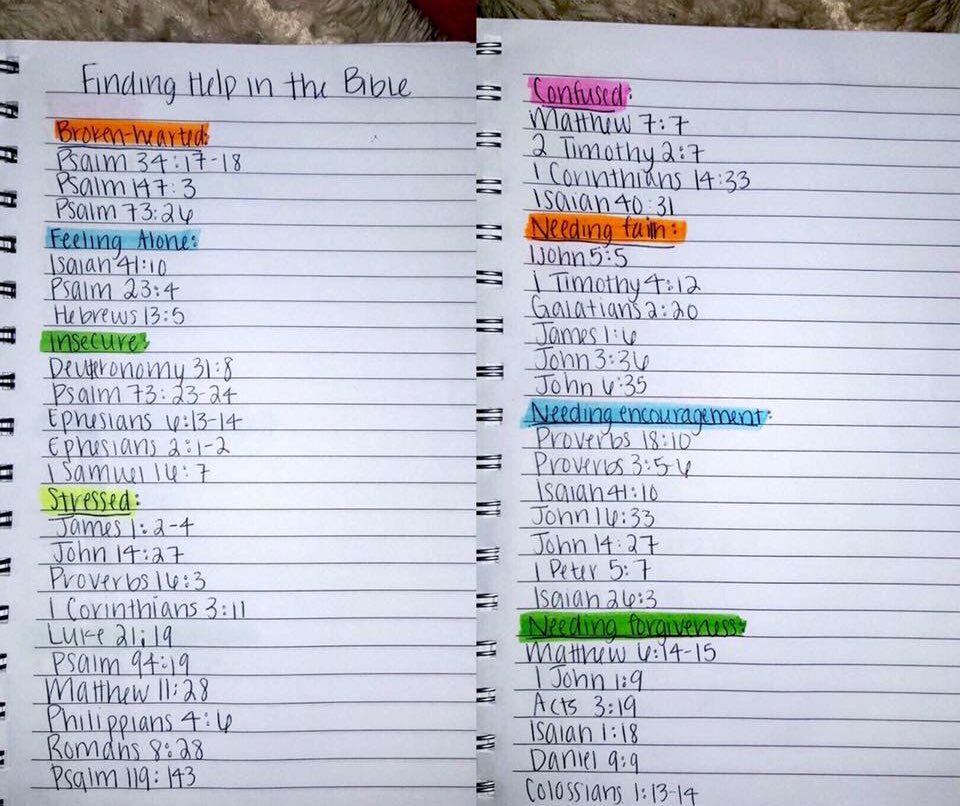 Finding Help in the Bible
Broken-hearted:
Psalm 34:17-18
Psalm 147:3
Psalm 73:26
Feeling Alone:
Isaiah 41:10
Psalm 23:4
Hebrews 13:5
Insecure:
Deuteronomy 31:8
Psalm 73:23-24
Ephesians 6:13-14
Ephesians 2:1-2
1 Samuel 16:7
Stressed:
James 1:2-4
John 14:27
Proverbs 16:3
1 Corinthians 3:11
Luke 21:19
Psalm 94:19
Matthew 11:28
Philippians 4:6
Romans 8:28
Psalm 119:143
Confused:
Matthew 7:7
2 Timothy 2:7
1 Corinthians 14:33
Isaiah 40:31
Needing faith:
1 John 5:5
1 Timothy 4:12
Galatians 2:20
James 1:6
John 3:36
John 6:35
Needing encouragement:
Proverbs 18:10
Proverbs 3:5-6
Isaiah 41:10
John 16:33
John 14:27
1 Peter 5:7
Isaiah 26:3
Needing forgiveness:
Matthew 6:14-15
1 John 1:9
Acts 3:19
Isaiah 1:18
Daniel 9:9
Colossians 1:13-14